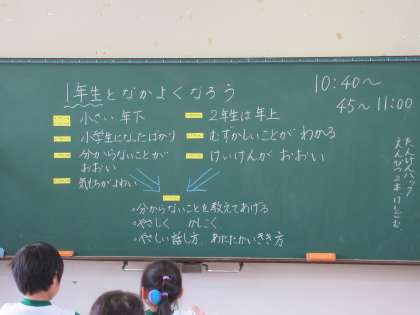 1年生となかよくなろう
10:40〜
45〜11:00
小さい 年下
小学生になったばかり
分からないことが
おおい
気もちがよわい
2年生は年上
むずかしいことが わかる
けいけんが おおい
・分からないことを教えてあげる
・やさしく かしこく
・やさしい話し方、あたたかいきき方
たんけんバッグ
えんぴつ2本